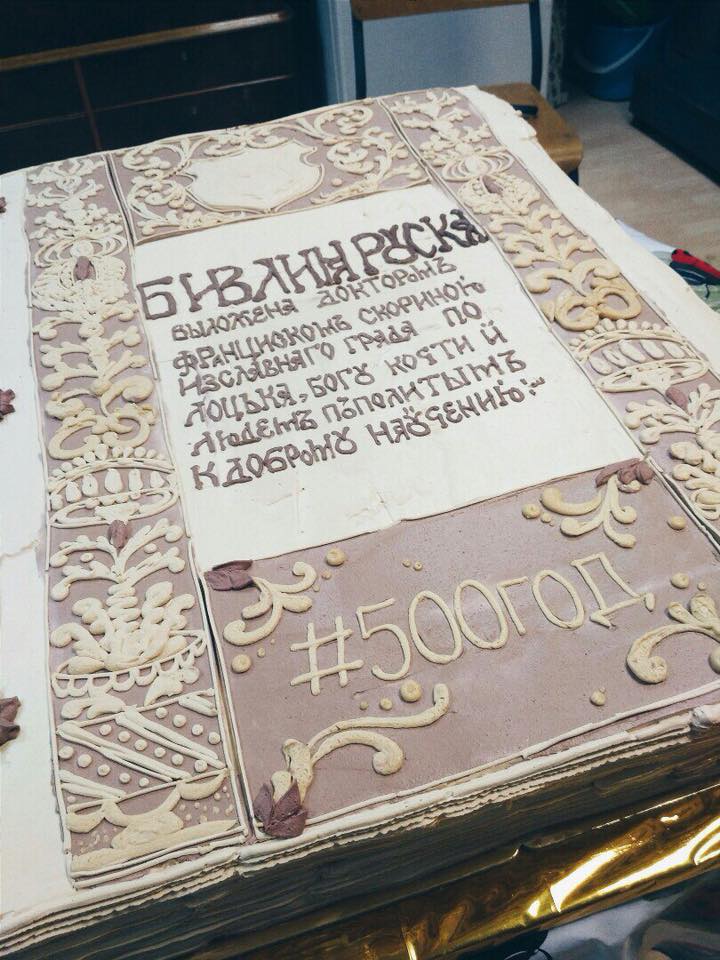 БИВЛИЯ РУСКА
ВЫЛОЖЕНА ДОКТОРОМЪ
ФРАНЦИСКОМЪ СКОРИНОЮ
ИЗСЛАВНАГО ГРАДА ПО
ЛОЦЬКА, БОГУ КОЧТИ И
ЛЮДЕМЪ ПЪПОЛИТЫМЪ
К ДОБРОМУ НАУЧЕНИЮ:
#500ГОД